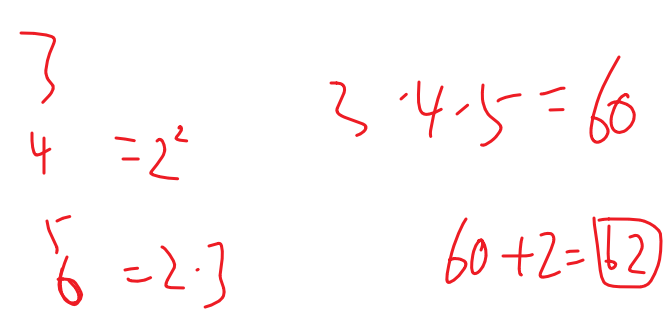 3
4 = 2²
5
6 = 2·3
3·4·5 = 60
60 + 2 = 62